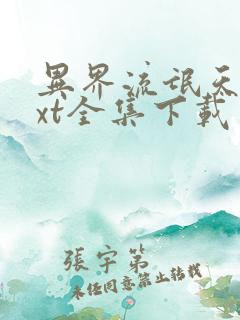 異界流氓天
xt全集下載
張宇第
未经同意禁止转载